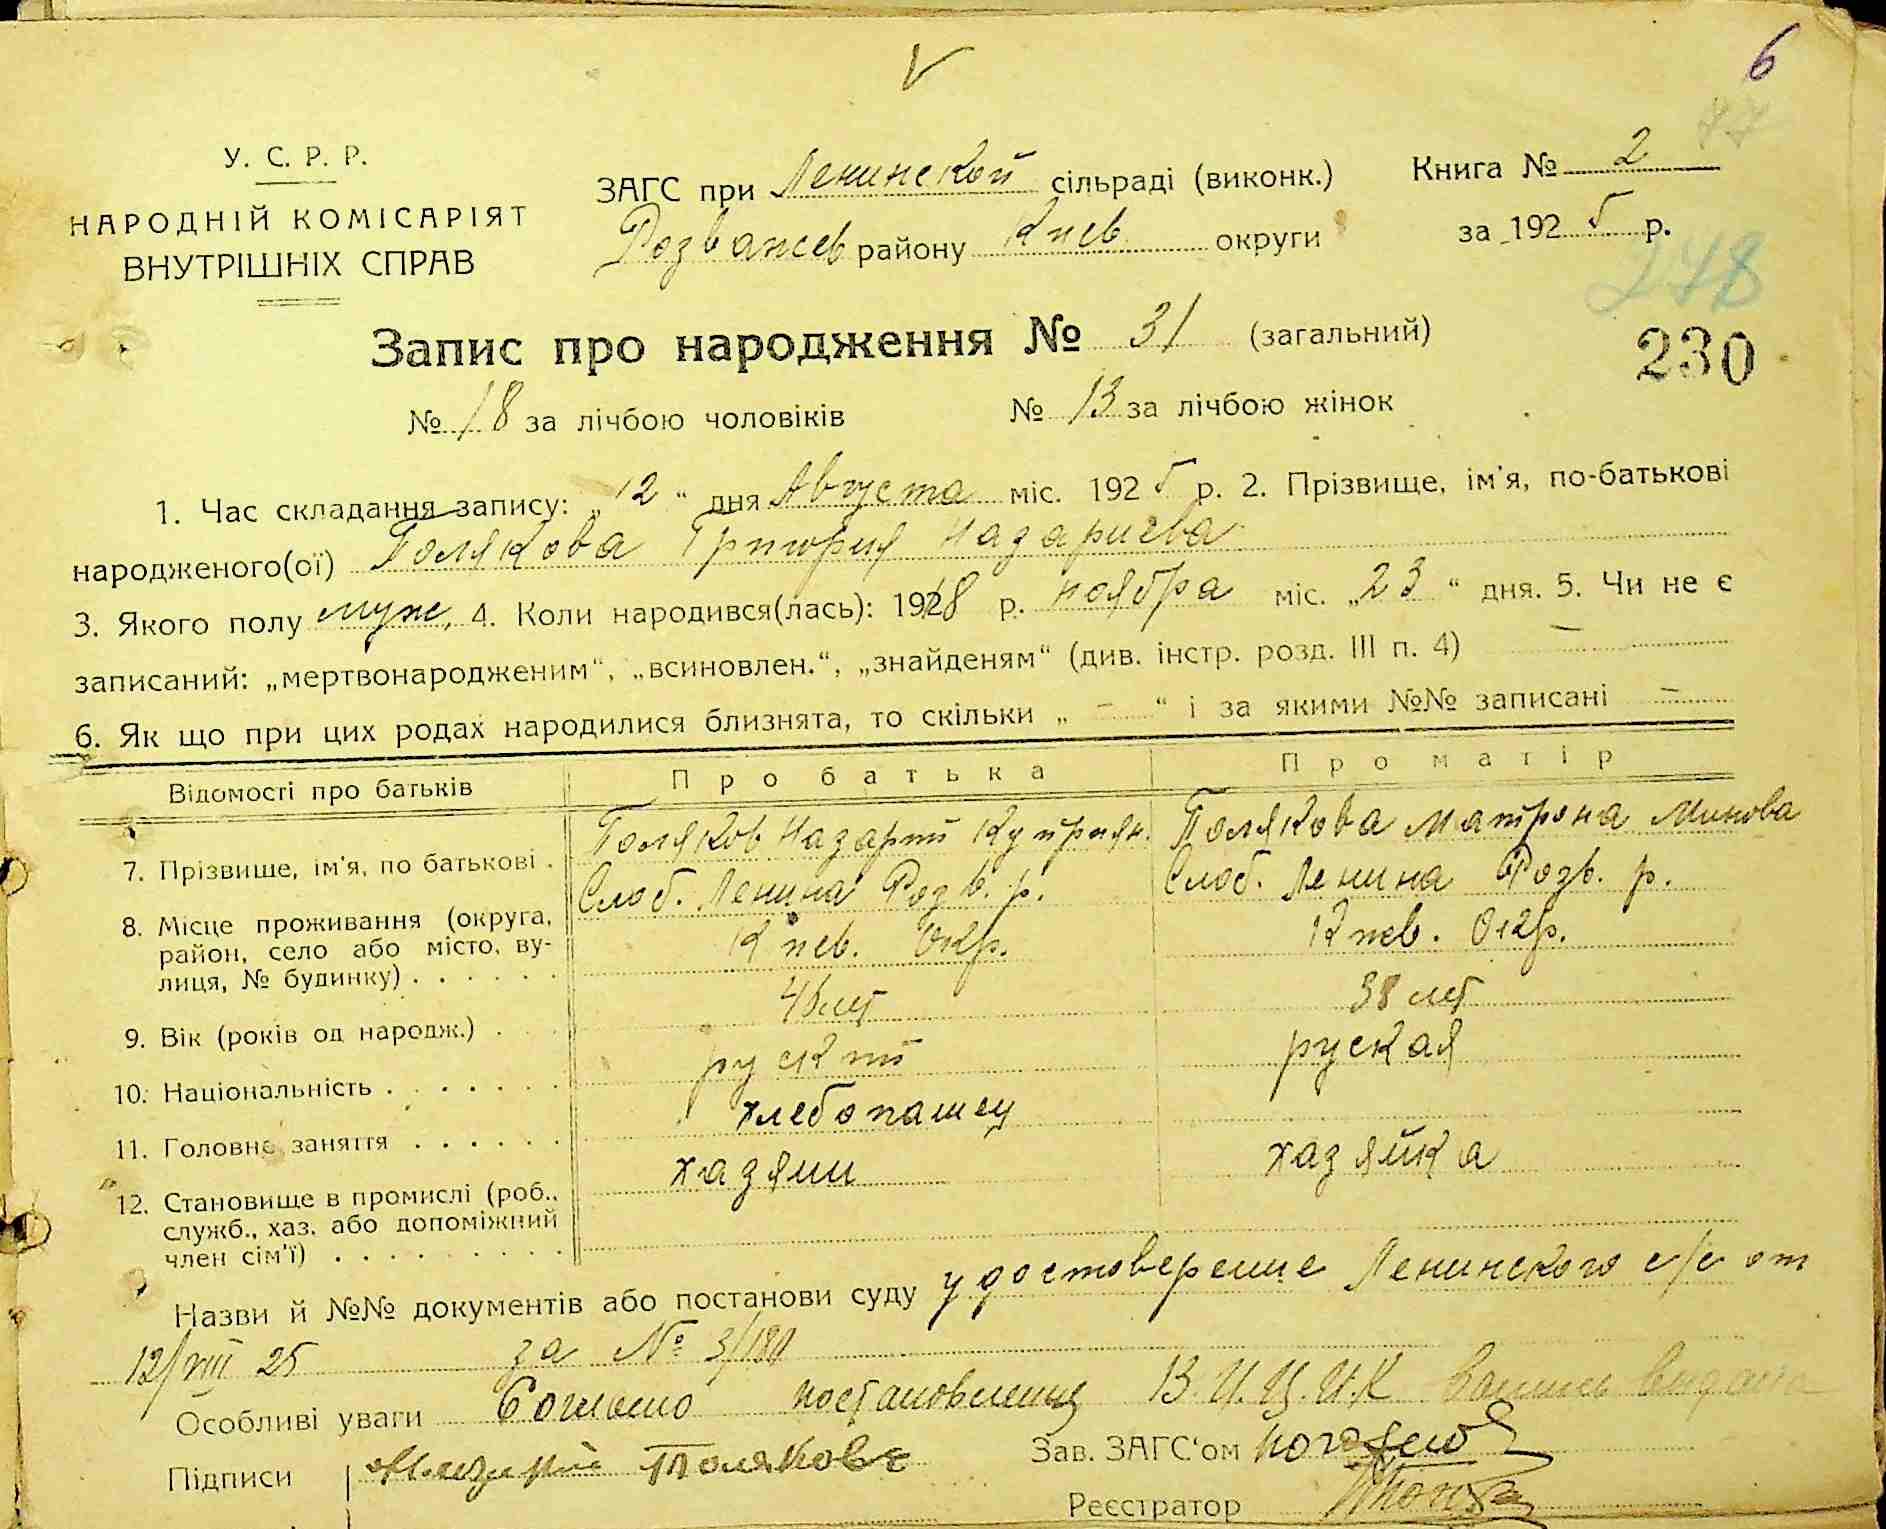 6
77
У. С. Р. Р.
НАРОДНІЙ КОМІСАРІЯТ
ВНУТРІШНІХ СПРАВ
ЗАГС при Ленинской сільраді (виконк.)
Розважев району Киев округи
Книга № 2
за 1925 р.
278
230
Запис про народження № 31 (загальний)
№ 18 за лічбою чоловіків № 13 за лічбою жінок
1. Час складання запису: „12“ дня Августа міс. 1925 р. 2. Прізвище, ім'я, по-батькові
народженого(ої) Полякова Григория Назариева
3. Якого полу муж. 4. Коли народився(лась): 1918 р. ноября міс. „23“ дня. 5. Чи не є
записаний: „мертвонародженим“, „всиновлен.“, „знайденям“ (див. інстр. розд. III п. 4) —
6. Як що при цих родах народилися близнята, то скільки „ - “ і за якими №№ записані —
Відомості про батьків Про батька Про матір
7. Прізвище, ім'я, по батькові . Поляков Назарий Куприян. Полякова Матрона Минова
8. Місце проживання (округа, район, село або місто, вулиця, № будинку) . . . . . . Слоб. Ленина Розв. р. Слоб. Ленина Розв. р.
Киев. Окр. Киев. Окр.
9. Вік (років од народж.) . лет 38 лет
10. Національність . . . . . . . руский руская
11. Головне заняття . . . . . . хлебопашец
12. Становище в промислі (роб., служб., хаз. або допоміжний член сім'ї) . . . . . . . . . хазяин хазяйка
Назви й №№ документів або постанови суду удостоверение Ленинского с/с от
12/VIII 25 за № 3/181
Особливі уваги Согласно постановления В.У.Ц.И.К запись
Підписи Назарий Поляков
Зав. ЗАГС'ом
Реєстратор